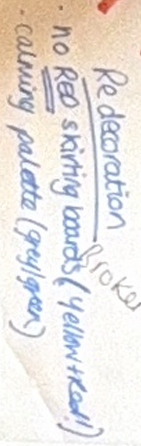 Redecoration
Broke
· no RED skirting boards (yellow + red!)
· calming palette (grey/green)